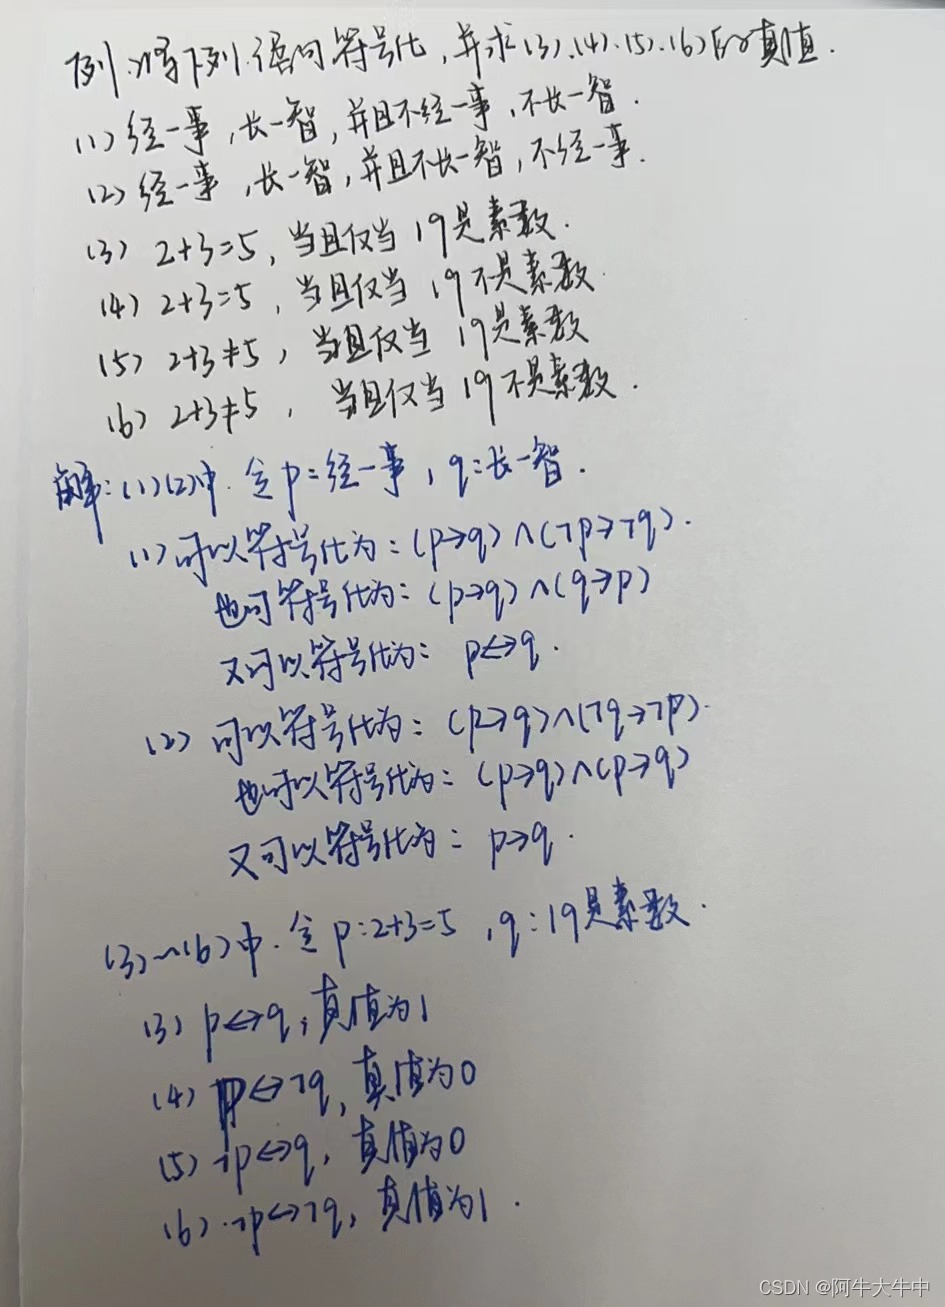 例:将下列语句符号化,并求(3)、(4)、(5)、(6)的真值.
(1) 经一事,长一智,并且不经一事,不长一智.
(2) 经一事,长一智,并且不长一智,不经一事.
(3) 2+3=5,当且仅当 19是素数.
(4) 2+3=5,当且仅当 19不是素数.
(5) 2+3≠5,当且仅当 19是素数
(6) 2+3≠5,当且仅当 19不是素数.
解:(1)(2)中.令p=经一事,q:长一智.
(1)可以符号化为:(p→q)∧(¬p→¬q).
也可符号化为:(p→q)∧(q→p)
又可以符号化为: p↔q.
(2) 可以符号化为:(p→q)∧(¬q→¬p).
也可以符号化为:(p→q)∧(p→q)
又可以符号化为: p→q.
(3)~(6)中.令p:2+3=5,q:19是素数.
(3) p↔q,真值为1
(4) p↔¬q,真值为0
(5) ¬p↔q,真值为0
(6) ¬p↔¬q,真值为1.
CSDN @阿牛大牛中